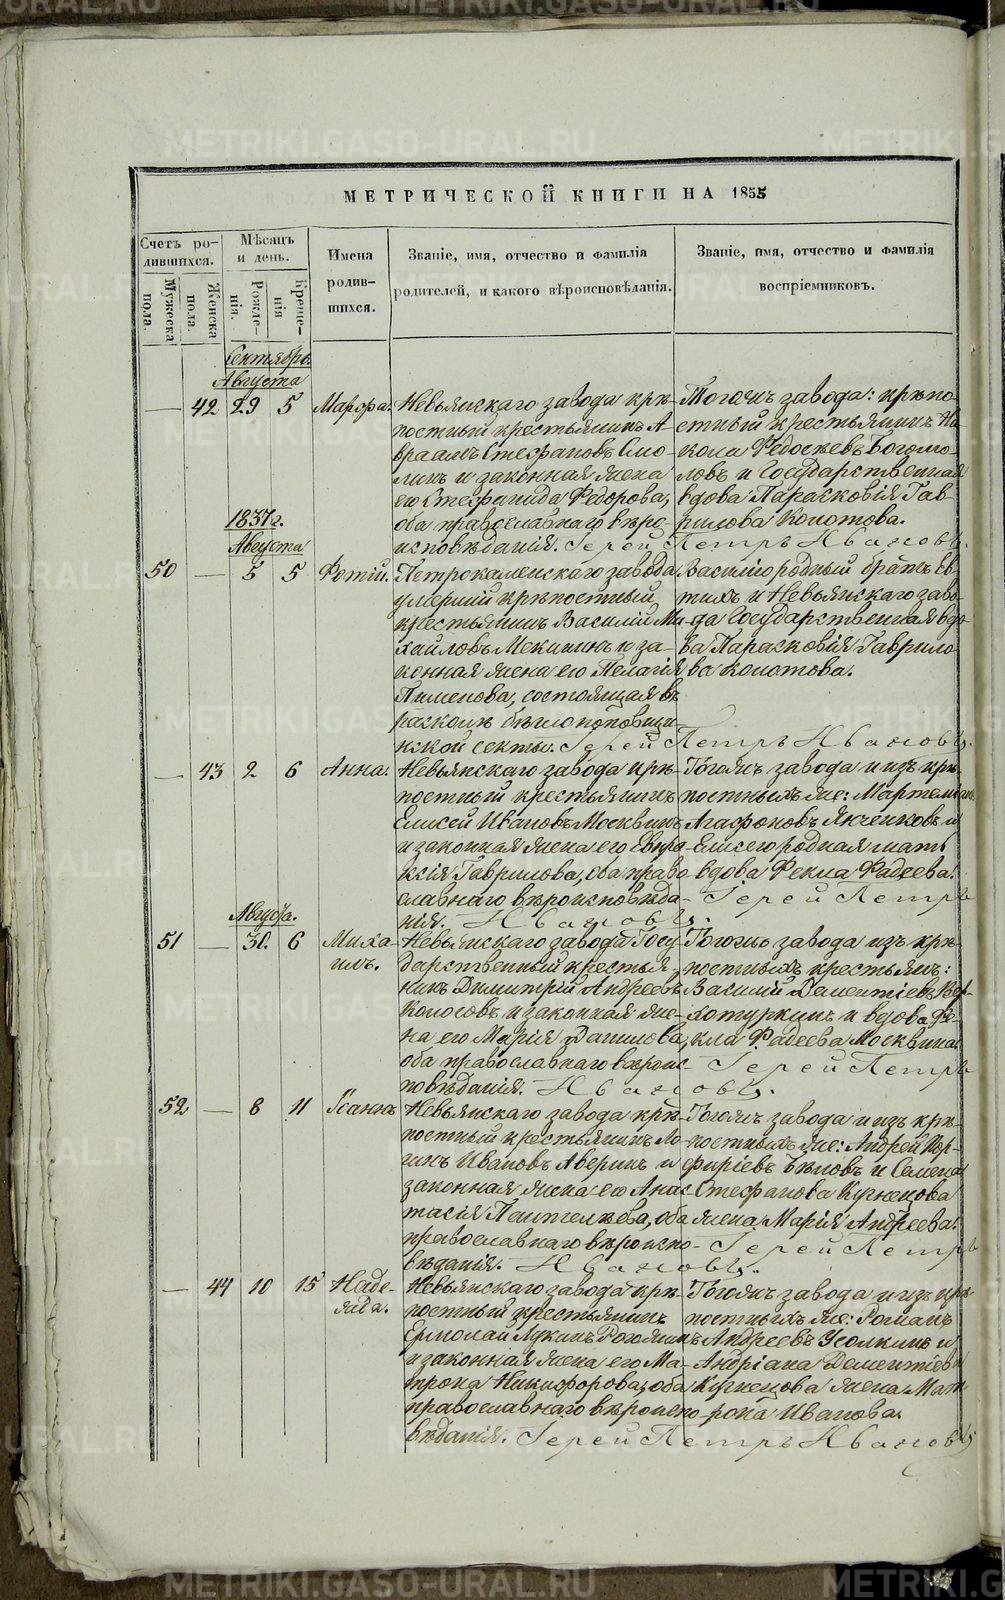 МЕТРИЧЕСКОЙ КНИГИ НА 1855
Счетъ ро-
дившихся.
Мужеска пола.
Женска пола.
Мѣсяцъ
и день.
Рожде-
нія.
Креще-
нія
Имена
родив-
шихся.
Званіе, имя, отчество и фамилія
родителей, и какого вѣроисповѣданія.
Званіе, имя, отчество и фамилія
воспріемниковъ.
Сентября.
Августа
— 42 29 5 Марѳа.
Невьянскаго завода крѣ-
постный крестьянинъ А-
враамъ Стефановъ
и законная жена
его Стефанида Федорова,
оба православнаго вѣро-
исповѣданія.
Тогожъ завода: крѣпо-
стный крестьянинъ Ни-
кола Федосѣевъ Богомо-
ловъ и Государственная
вдова Парасковія Гав-
рилова Копотова.
Іерей Петръ Ивановъ.
1837 г.
Августа
50 — 5 5 Фотій.
Петрокаменскаго завода
умершій крѣпостный
крестьянинъ Василій Ми-
хайловъ Мекишинъ и за-
конная жена его Пелагія
Пименова, состоящая въ
расколѣ бѣглопоповщи-
нской секты.
Василію родный братъ Ев-
тихъ и Невьянскаго заво-
да Государственная вдо-
ва Парасковія Гаврило-
ва Копотова.
Іерей Петръ Ивановъ.
— 43 2 6 Анна.
Невьянскаго завода крѣ-
постный крестьянинъ
Елисей Ивановъ Москвинъ
и законная жена его Евпра-
ксія Гаврилова, оба право-
славнаго вѣроисповѣда-
нія.
Тогожъ завода и изъ крѣ-
постныхъ же: Мартеміанъ
Агафоновъ Янченковъ и
Елисею родная мать
вдова Фекла Фадеева.
Іерей Петръ
Ивановъ.
Августа.
51 — 30. 6 Миха-
илъ.
Невьянскаго завода Госу-
дарственный крестья-
нинъ Димитрій Андреевъ
Колосовъ и законная же-
на его Марія Данилова,
оба православнаго вѣроис-
повѣданія.
Тогожъ завода изъ крѣ-
постныхъ крестьянъ:
Василій Дементіевъ Вер-
хотуркинъ и вдова Фе-
кла Фадеева Москвина.
Іерей Петръ
Ивановъ.
52 — 8 11 Іоаннъ
Невьянскаго завода крѣ-
постный крестьянинъ Ло-
гинъ Ивановъ Аверинъ и
законная жена его Анас-
тасія Пантелѣева, оба
православнаго вѣроиспо-
вѣданія.
Тогожъ завода и изъ крѣ-
постныхъ же: Андрей Пор-
фиріевъ Бѣловъ и Семена
Стефанова Кузнецова
жена Марія Андреева.
Іерей Петръ
Ивановъ.
— 44 10 15 Наде-
жда.
Невьянскаго завода крѣ-
постный крестьянинъ
Ермолай Лукинъ Рогожинъ
и законная жена его Ма-
трона Никифорова, оба
православнаго вѣроиспо-
вѣданія.
Тогожъ завода и изъ крѣ-
постныхъ же: Романъ
Андреевъ Усолкинъ и
Андріана Дементіева
Кузнецова жена Мат-
рона Иванова.
Іерей Петръ Ивановъ
METRIKI.GASO-URAL.RU